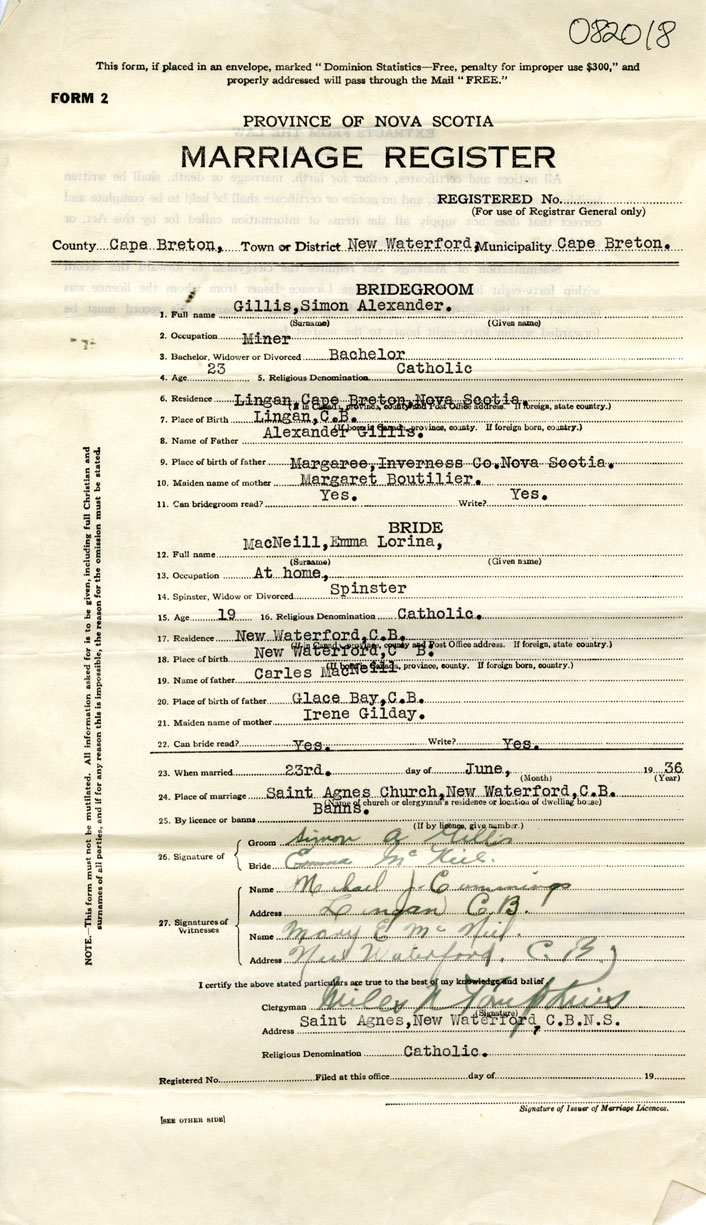 082018
This form, if placed in an envelope, marked "Dominion Statistics—Free, penalty for improper use $300," and
properly addressed will pass through the Mail "FREE."
FORM 2
PROVINCE OF NOVA SCOTIA
MARRIAGE REGISTER
REGISTERED No.
(For use of Registrar General only)
County Cape Breton, Town or District New Waterford, Municipality Cape Breton.
BRIDEGROOM
1. Full name Gillis, Simon Alexander.
(Surname) (Given name)
2. Occupation Miner
3. Bachelor, Widower or Divorced Bachelor
4. Age 23 5. Religious Denomination Catholic
6. Residence Lingan, Cape Breton, Nova Scotia.
(If in Canada, province, county and Post Office address. If foreign, state country.)
7. Place of Birth Lingan, C.B.
(If born in Canada, province, county. If foreign born, country.)
8. Name of Father Alexander Gillis.
9. Place of birth of father Margaree, Inverness Co. Nova Scotia.
10. Maiden name of mother Margaret Boutilier.
11. Can bridegroom read? Yes. Write? Yes.
BRIDE
12. Full name MacNeill, Emma Lorina,
(Surname) (Given name)
13. Occupation At home,
14. Spinster, Widow or Divorced Spinster
15. Age 19 16. Religious Denomination Catholic.
17. Residence New Waterford, C.B.
(If in Canada, province, county and Post Office address. If foreign, state country.)
18. Place of birth New Waterford, C B.
(If born in Canada, province, county. If foreign born, country.)
19. Name of father Carles MacNeill
20. Place of birth of father Glace Bay, C.B.
21. Maiden name of mother Irene Gilday.
22. Can bride read? Yes. Write? Yes.
23. When married 23rd. day of June, 1936
(Month) (Year)
24. Place of marriage Saint Agnes Church, New Waterford, C.B.
(Name of church or clergyman's residence or location of dwelling house)
25. By licence or banns Banns.
(If by licence, give number.)
26. Signature of
Groom Simon A Gillis
Bride Emma McNeil.
27. Signatures of Witnesses
Name Michael J. Cummings
Address Lingan C.B.
Name Mary E McNeil.
Address New Waterford. C B
I certify the above stated particulars are true to the best of my knowledge and belief
Clergyman Miles N Tompkins
(Signature)
Address Saint Agnes, New Waterford, C.B.N.S.
Religious Denomination Catholic.
Registered No. Filed at this office day of 19
Signature of Issuer of Marriage Licences.
[SEE OTHER SIDE]
NOTE.—This form must not be mutilated. All information asked for is to be given, including full Christian and
surnames of all parties, and if for any reason this is impossible, the reason for the omission must be stated.